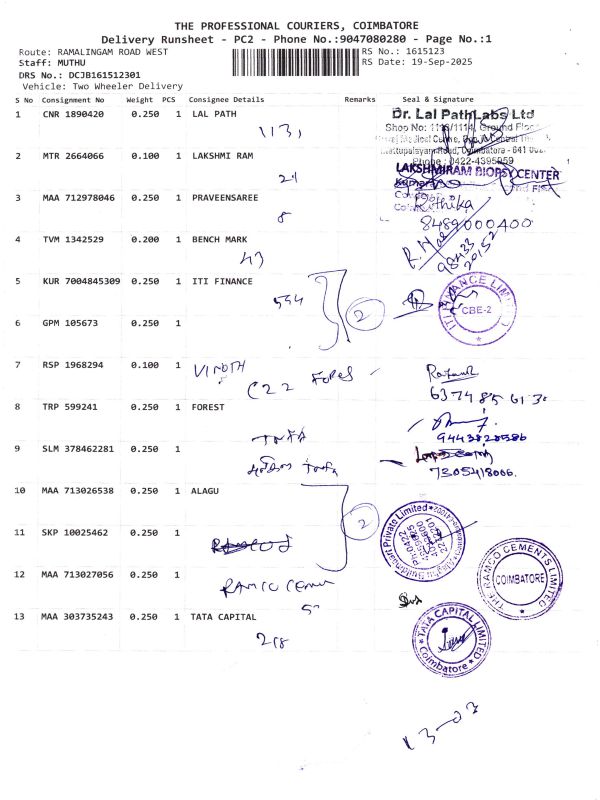 THE PROFESSIONAL COURIERS, COIMBATORE
Delivery Runsheet - PC2 - Phone No.:9047080280 - Page No.:1
Route: RAMALINGAM ROAD WEST
RS No.: 1615123
Staff: MUTHU
RS Date: 19-Sep-2025
DRS No.: DCJB161512301
Vehicle: Two Wheeler Delivery
S No Consignment No Weight PCS Consignee Details Remarks Seal & Signature
1 CNR 1890420 0.250 1 LAL PATH
Dr. Lal PathLabs Ltd
Shop No: 1113/1114, Ground Floor
Phone: 0422-4395959
2 MTR 2664066 0.100 1 LAKSHMI RAM
21
LAKSHMIRAM BIOPSY CENTER
3 MAA 712978046 0.250 1 PRAVEENSAREE
8
Rithika
8489000400
4 TVM 1342529 0.200 1 BENCH MARK
43
98433
20152
5 KUR 7004845309 0.250 1 ITI FINANCE
554
2
ITI FINANCE LIMITED
CBE-2
6 GPM 105673 0.250 1
7 RSP 1968294 0.100 1 VINOTH
C22 FORES
6374856130
8 TRP 599241 0.250 1 FOREST
TNFA
9443828586
9 SLM 378462281 0.250 1
7305418006
10 MAA 713026538 0.250 1 ALAGU
2
11 SKP 10025462 0.250 1
12 MAA 713027056 0.250 1
RAMCO Cement
THE RAMCO CEMENTS LIMITED
COIMBATORE
13 MAA 303735243 0.250 1 TATA CAPITAL
218
TATA CAPITAL LIMITED
Coimbatore
13-03